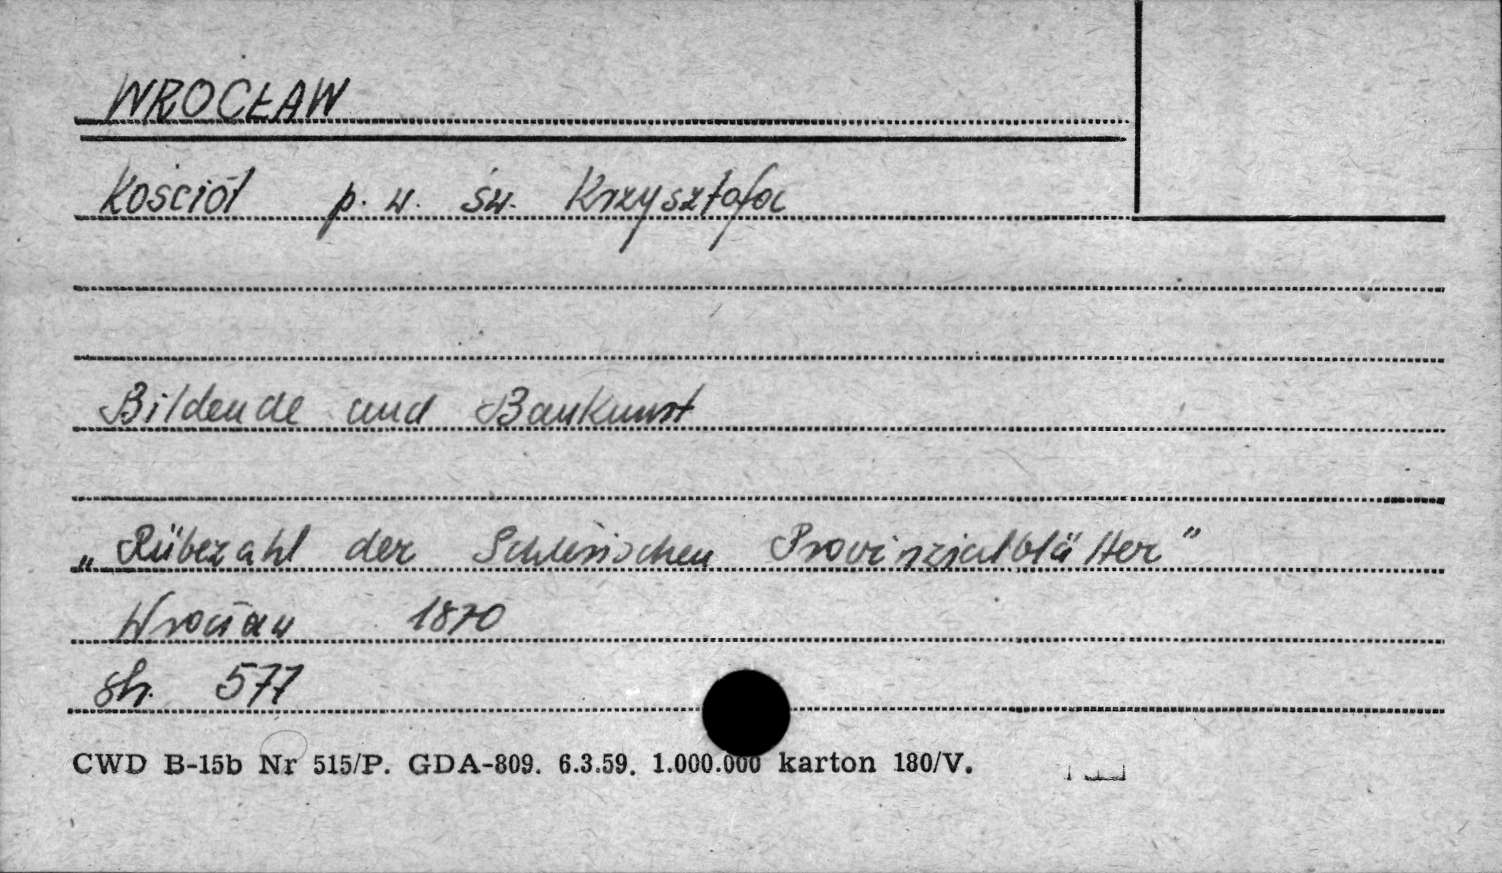 WROCŁAW
Kościół p.w. św. Krzysztofa
Bildende und Baukunst
„Rübezahl der Schlesischen Provinzialblätter"
Wrocław 1870
str. 577
CWD B-15b Nr 515/P. GDA-809. 6.3.59. 1.000.000 karton 180/V.